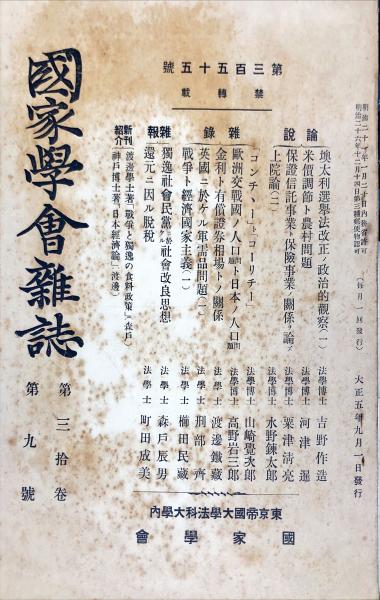 第三百五十五號
禁轉載
明治二十年三月二十日內務省許可
明治二十六年十二月十四日第三種郵便物認可
(每月一回發行)
大正五年九月一日發行
論說
墺太利選擧法改正ノ政治的觀察(一) 法學博士 吉野作造
米價調節ト農村問題 法學博士 河津暹
保證信託事業ト保險事業ノ關係ヲ論ス 法學博士 粟津淸亮
上院論(二) 法學博士 水野鍊太郞
雜錄
「コンチ、ー」ト「コーリチー」 法學博士 山崎覺次郞
歐洲交戰國ノ人口問題ト日本ノ人口問題 法學博士 高野岩三郞
金利ト有價證券相場トノ關係 法學士 渡邊鐵藏
英國ニ於ケル軍需品問題(一) 法學士 刑部齊
戰爭ト經濟國家主義(二) 法學士 櫛田民藏
雜報
獨逸社會民黨ニ於ケル社會改良思想 法學士 森戶辰男
還元ニ因ル脫稅 法學士 町田成美
新刊紹介
渡邊學士著「戰爭と獨逸の食料政策」(森戶)
神戶博士著「日本經濟論」(渡邊)
國家學會雜誌
第三拾卷
第九號
東京帝國大學法科大學內
國家學會